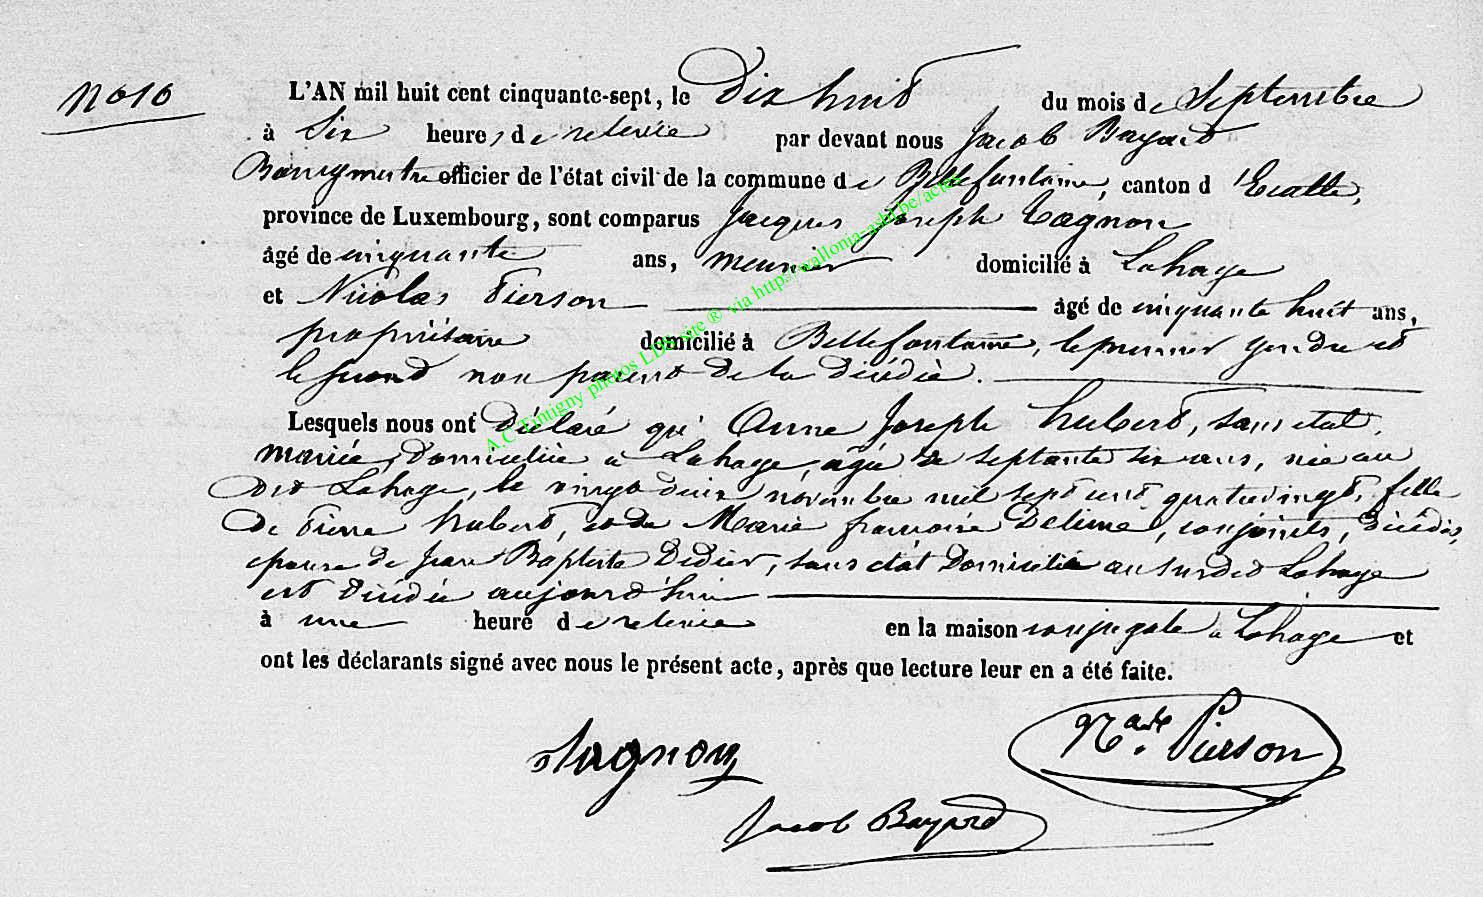 No 10
L'AN mil huit cent cinquante-sept, le Dix huit du mois de Septembre
à Six heures de relevée par devant nous Jacob Bayard
Bourgmestre officier de l'état civil de la commune de Bellefontaine, canton d'Etalle,
province de Luxembourg, sont comparus Jacques Joseph Tagnon
âgé de cinquante ans, meunier domicilié à Lahage
et Nicolas Pierson âgé de cinquante huit ans,
propriétaire domicilié à Bellefontaine, le premier gendre et
le second non parent de la décédée.
Lesquels nous ont déclaré qu'Anne Joseph hubert, sans état,
mariée, domiciliée à Lahage, agée de septante six ans, née au
dit Lahage, le vingt deux novembre mil sept cent quatrevingt, fille
de Pierre hubert, et de Marie françoise Delime, conjoints, décédés,
épouse de Jean Baptiste Didier, sans état domicilié au susdit Lahage
est décédée aujourd'hui
à une heure de relevée en la maison conjugale à Lahage et
ont les déclarants signé avec nous le présent acte, après que lecture leur en a été faite.
Tagnon
Pierson
Jacob Bayard
A.C Tintigny photos LDS site ® via http://wallonia-asbl.be/actes